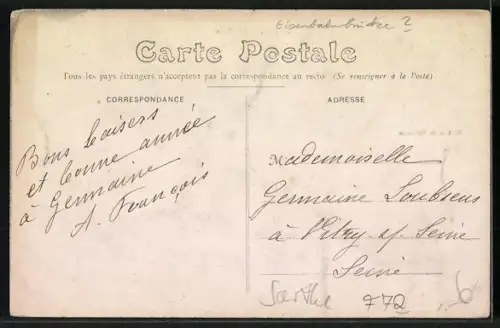 Eisenbahnbrücke ?
Carte Postale
Tous les pays étrangers n'acceptent pas la correspondance au recto (Se renseigner à la Poste)
CORRESPONDANCE
Bons baisers
et bonne année
à Germaine
A. François
ADRESSE
Mademoiselle
Germaine Loubsens
à Vitry s/ Seine
Seine
Sarthe
772
6